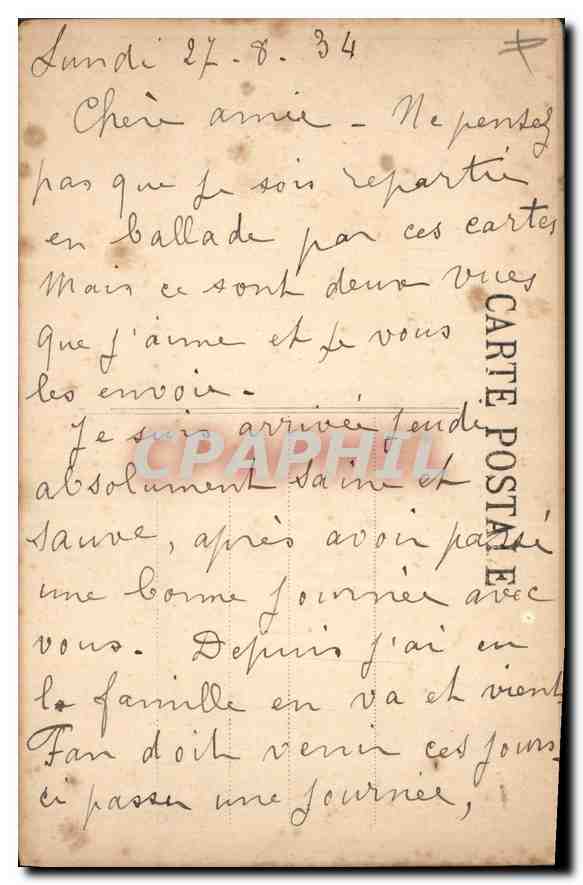 Lundi 27-8-34
Chère amie - Ne pensez
pas que je sois repartie
en ballade par ces cartes
Mais ce sont deux vues
que j'aime et je vous
les envoie.
Je suis arrivée jeudi
absolument saine et
sauve, après avoir passé
une bonne journée avec
vous. Depuis j'ai eu
la famille en va et vient
Fan doit venir ces jours
ci passer une journée,
CARTE POSTALE
CPAPHIL